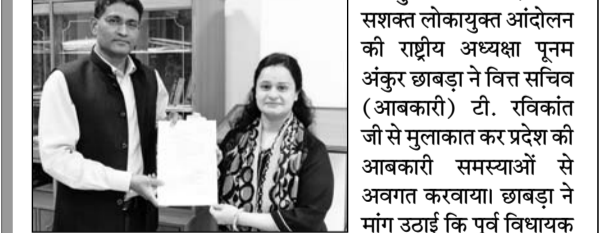 सशक्त लोकायुक्त आंदोलन
की राष्ट्रीय अध्यक्षा पूनम
अंकुर छाबड़ा ने वित्त सचिव
(आबकारी) टी. रविकांत
जी से मुलाकात कर प्रदेश की
आबकारी समस्याओं से
अवगत करवाया। छाबड़ा ने
मांग उठाई कि पूर्व विधायक